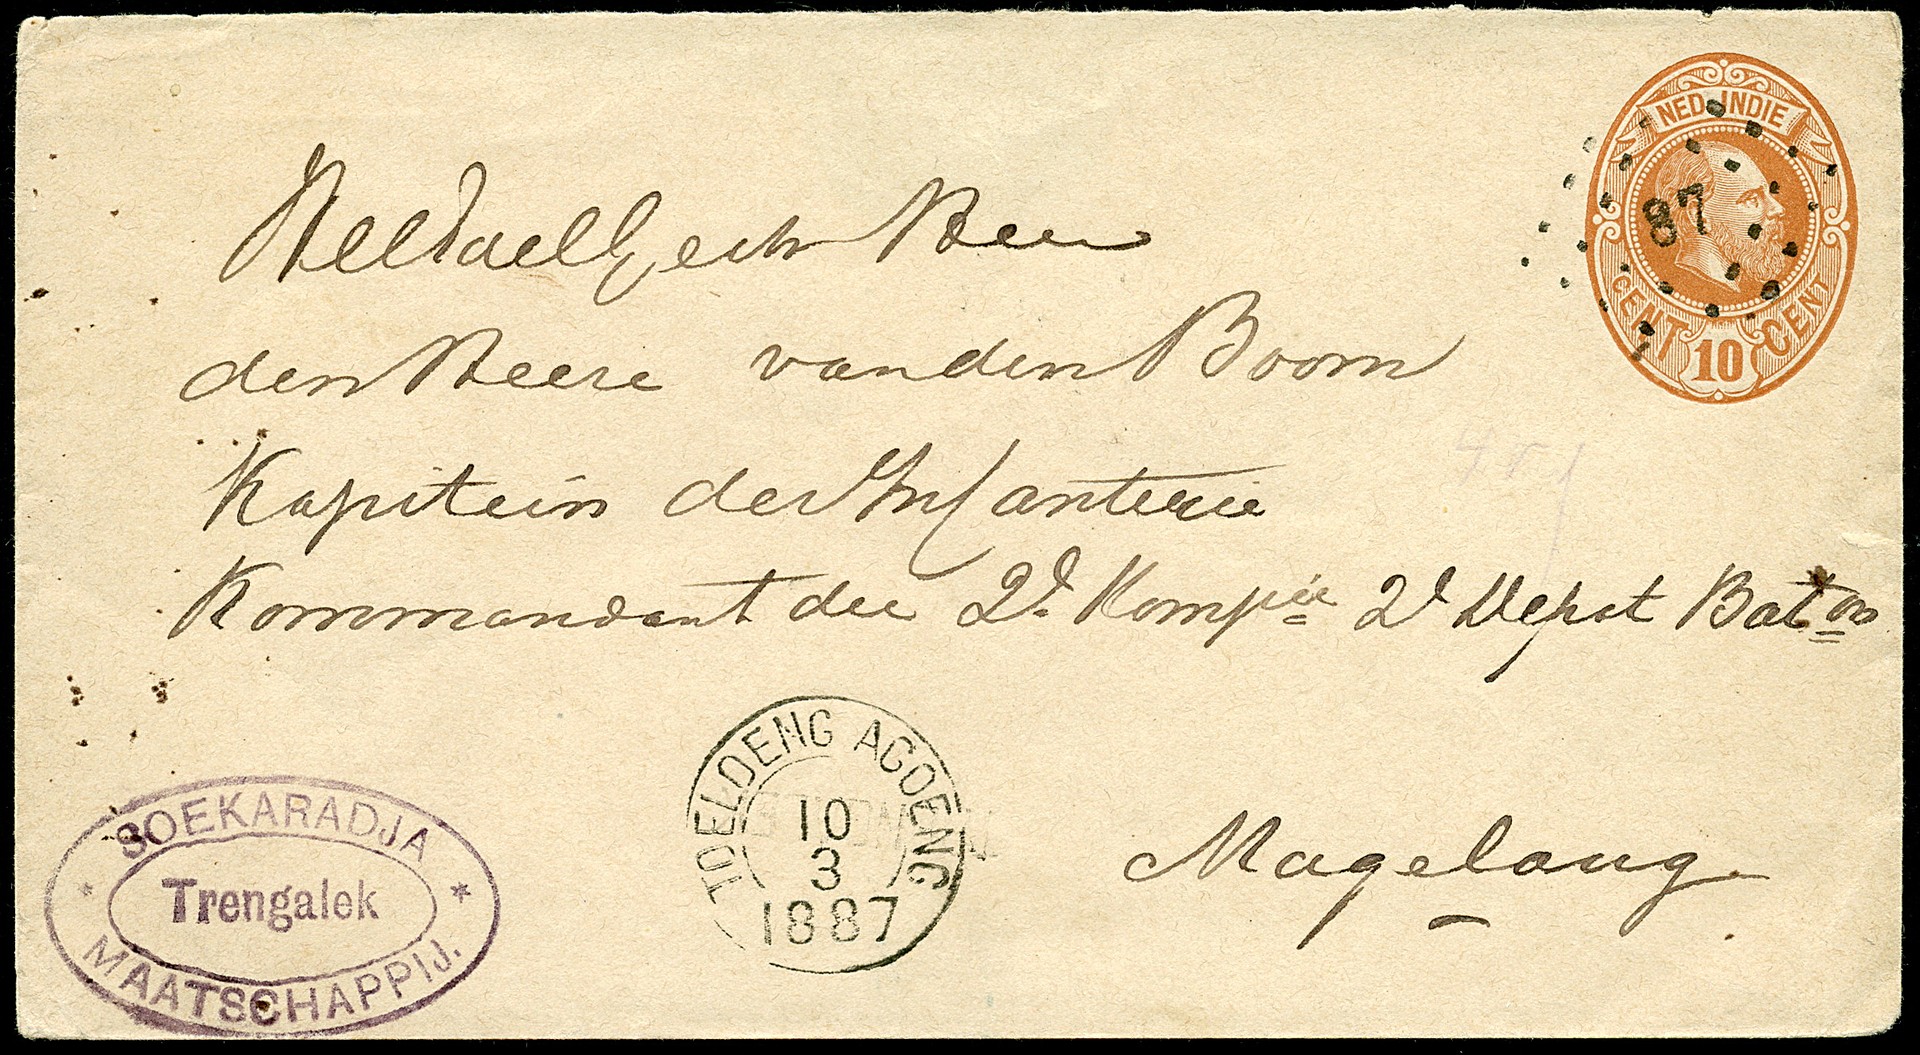 NED. INDIE
CENT 10 CENT
87
WelEdelGestr Heer
den Heere van den Boom
Kapitein der Infanterie
Kommandant der 2e Kompie 2e Depot Baton
TOELOENG AGOENG
10
3
1887
Magelang
SOEKARADJA
Trengalek
MAATSCHAPPIJ.